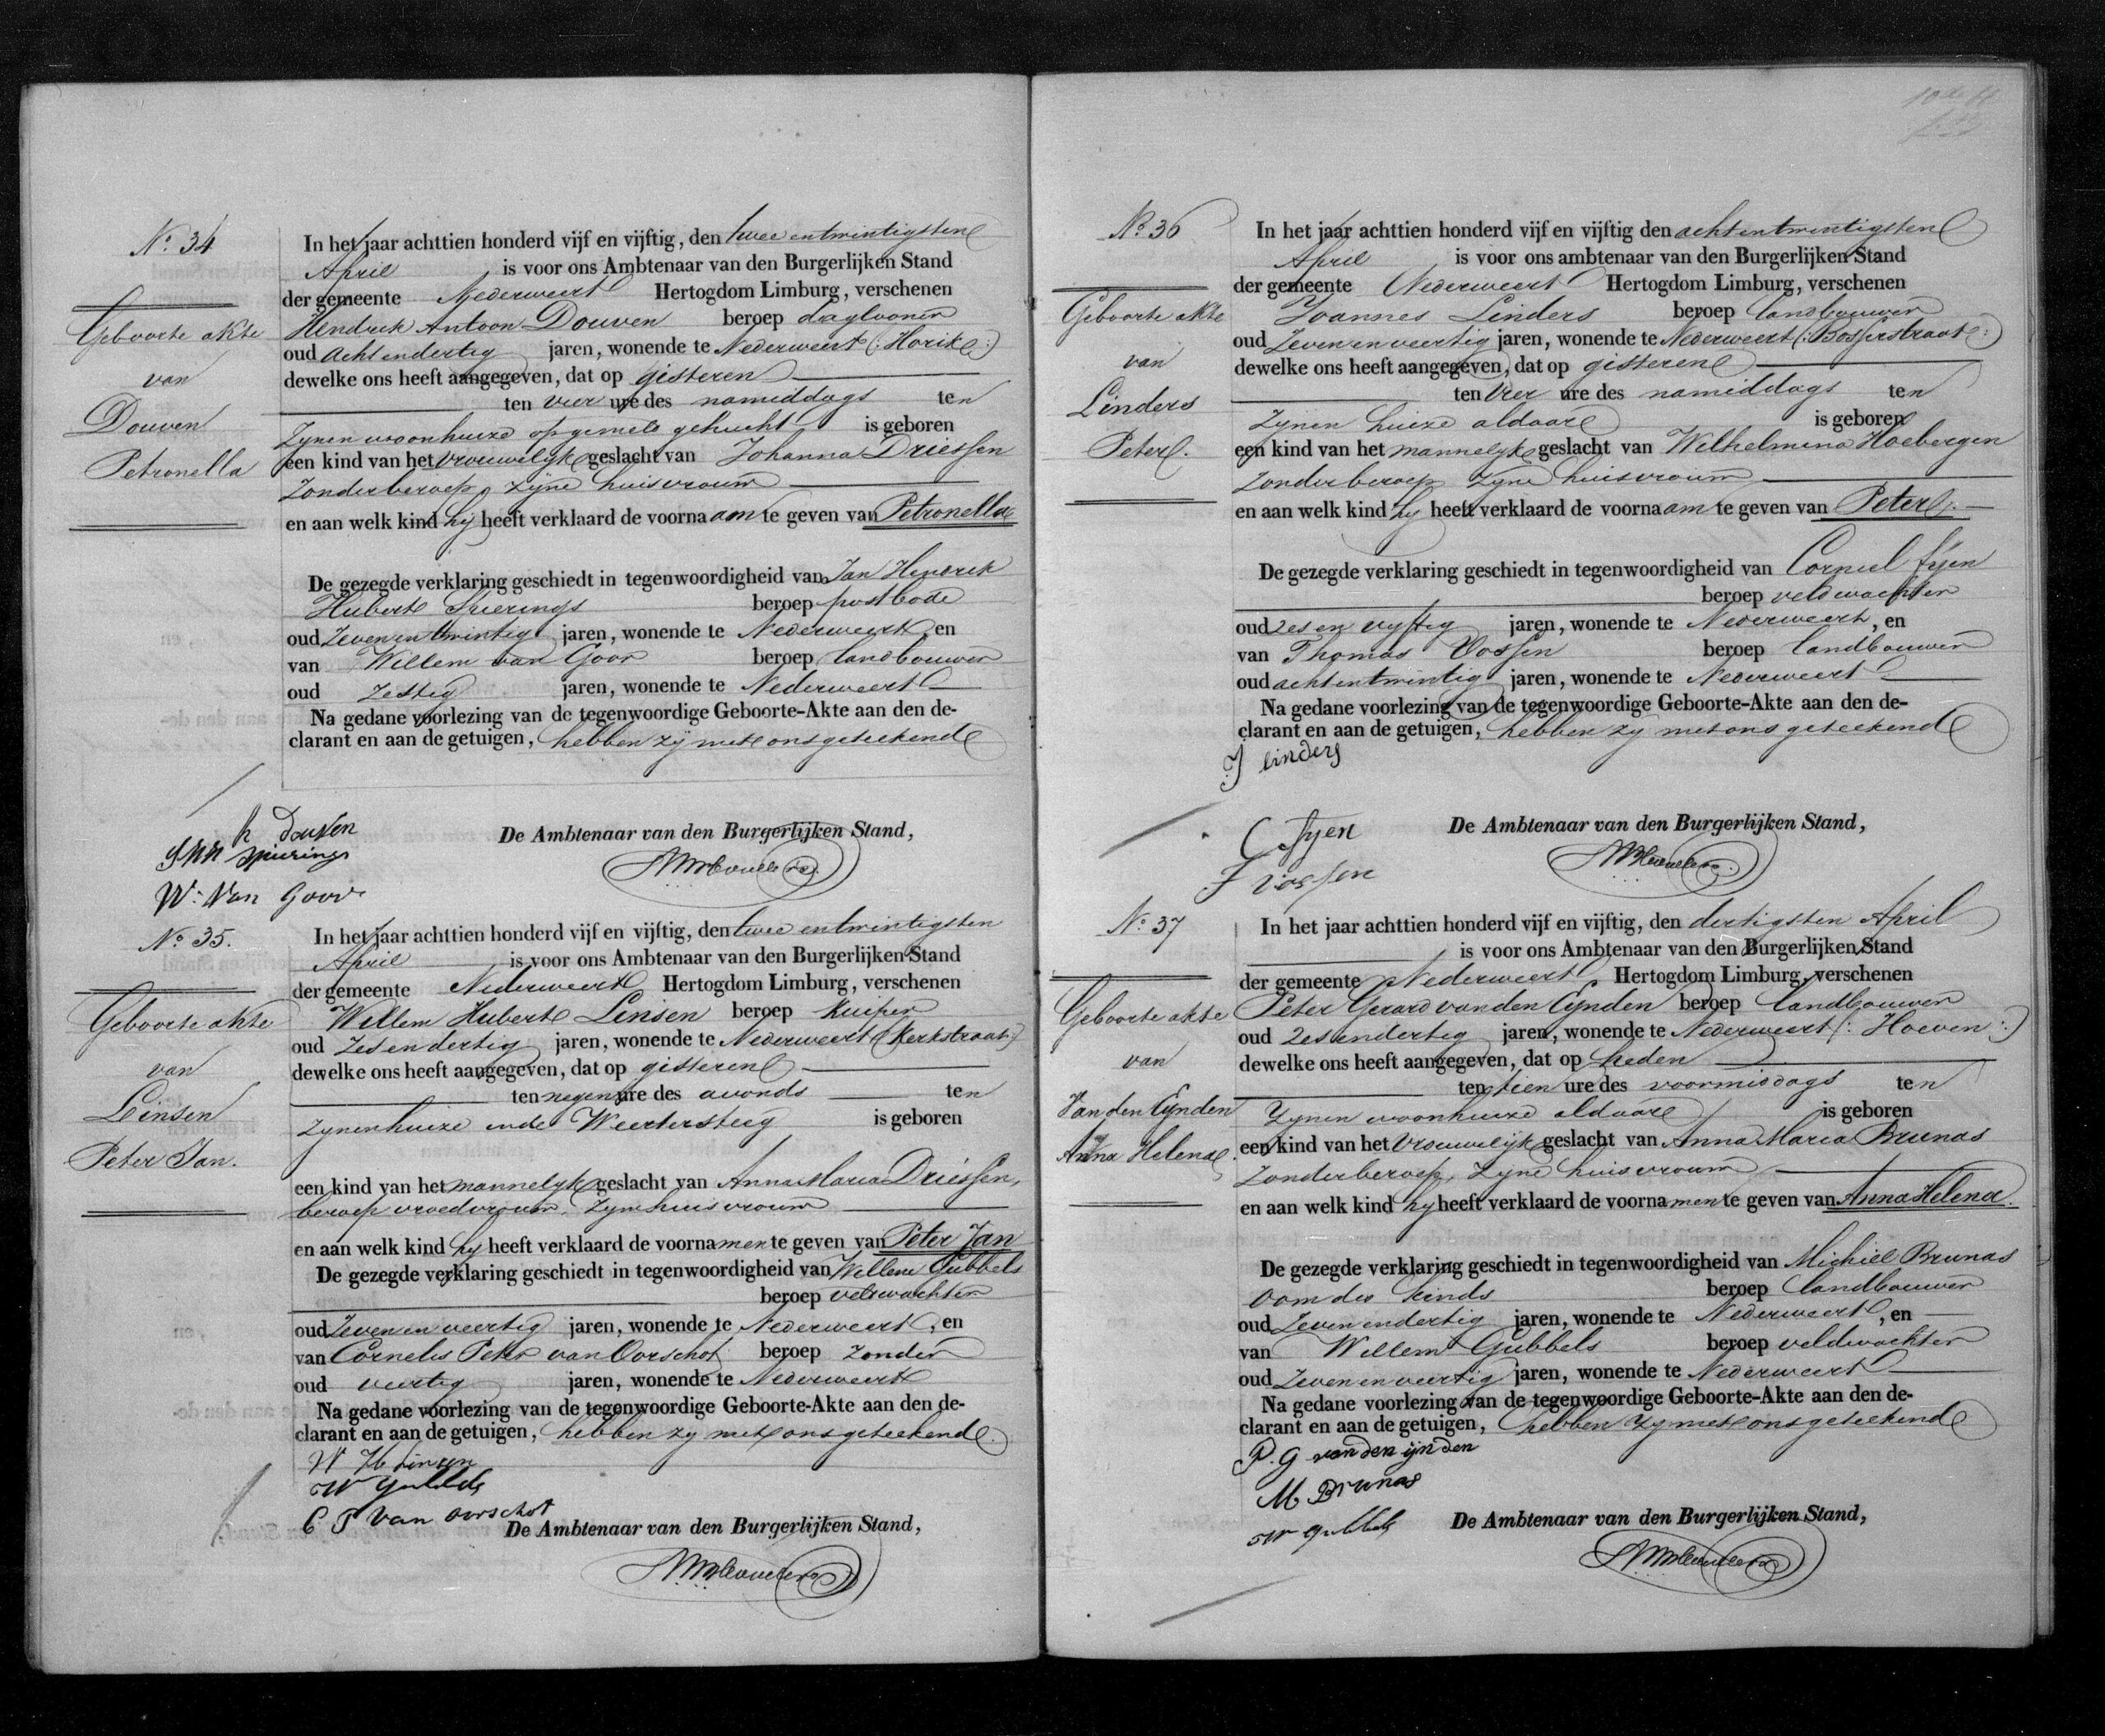 Nº 34
Geboorte akte
van
Douven
Petronella
In het jaar achttien honderd vijf en vijftig, den twee entwintigsten
April is voor ons Ambtenaar van den Burgerlijken Stand
der gemeente Nederweert Hertogdom Limburg, verschenen
Hendrik Antoon Douven beroep daglooner
oud achtendertig jaren, wonende te Nederweert (: Horik :)
dewelke ons heeft aangegeven, dat op gisteren
ten vier ure des namiddags ten
zynen woonhuize op gemeld gehucht is geboren
een kind van het vrouwelyk geslacht van Johanna Driessen
zonder beroep, zyne huisvrouw
en aan welk kind hy heeft verklaard de voornaam te geven van Petronella
De gezegde verklaring geschiedt in tegenwoordigheid van Jan Hendrik
Hubert Spierings beroep postbode
oud zevenentwintig jaren, wonende te Nederweert, en
van Willem van Goor beroep landbouwer
oud zestig jaren, wonende te Nederweert
Na gedane voorlezing van de tegenwoordige Geboorte-Akte aan den de-
clarant en aan de getuigen, hebben zij met ons geteekend
h Douven
Spierings
W. Van Goor
De Ambtenaar van den Burgerlijken Stand,
Nº 35.
Geboorte akte
van
Linsen
Peter Jan.
In het jaar achttien honderd vijf en vijftig, den twee entwintigsten
April is voor ons Ambtenaar van den Burgerlijken Stand
der gemeente Nederweert Hertogdom Limburg, verschenen
Willem Hubert Linsen beroep kuiper
oud zesendertig jaren, wonende te Nederweert (Kerkstraat)
dewelke ons heeft aangegeven, dat op gisteren
ten negen ure des avonds ten
zynenhuize inde Weertersteeg is geboren
een kind van het mannelyk geslacht van Anna Maria Driessen,
beroep vroedvrouw, zyne huisvrouw
en aan welk kind hy heeft verklaard de voornamen te geven van Peter Jan
De gezegde verklaring geschiedt in tegenwoordigheid van Willem Gubbels
beroep veldwachter
oud zeven en veertig jaren, wonende te Nederweert, en
van Cornelis Peter van Oorschot beroep zonder
oud veertig jaren, wonende te Nederweert
Na gedane voorlezing van de tegenwoordige Geboorte-Akte aan den de-
clarant en aan de getuigen, hebben zy met ons geteekend.
W H Linsen
W Gubbels
C P Van Oorschot
De Ambtenaar van den Burgerlijken Stand,
Nº 36
Geboorte akte
van
Linders
Peter.
In het jaar achttien honderd vijf en vijftig den achtentwintigsten
April is voor ons ambtenaar van den Burgerlijken Stand
der gemeente Nederweert Hertogdom Limburg, verschenen
Joannes Linders beroep landbouwer
oud zeven en veertig jaren, wonende te Nederweert (: Bosserstraat :)
dewelke ons heeft aangegeven, dat op gisteren
ten vier ure des namiddags ten
zynen huize aldaar is geboren
een kind van het mannelyk geslacht van Wilhelmina Hoebergen
zonder beroep zyne huisvrouw
en aan welk kind hy heeft verklaard de voornaam te geven van Peter.
De gezegde verklaring geschiedt in tegenwoordigheid van Corneel Fijen
beroep veldwachter
oud zes en vyftig jaren, wonende te Nederweert, en
van Thomas Vossen beroep landbouwer
oud achtentwintig jaren, wonende te Nederweert
Na gedane voorlezing van de tegenwoordige Geboorte-Akte aan den de-
clarant en aan de getuigen, hebben zy met ons geteekend
J linders
C Fyen
T vossen
De Ambtenaar van den Burgerlijken Stand,
Nº 37
Geboorte akte
van
Van den Eynden
Anna Helena.
In het jaar achttien honderd vijf en vijftig, den dertigsten April
is voor ons Ambtenaar van den Burgerlijken Stand
der gemeente Nederweert, Hertogdom Limburg, verschenen
Peter Gerard van den Eynden beroep landbouwer
oud zesendertig jaren, wonende te Nederweert (: Hoeven :)
dewelke ons heeft aangegeven, dat op heden
ten tien ure des voormiddags ten
zynen woonhuize aldaar is geboren
een kind van het vrouwelyk geslacht van Anna Maria Brunas
zonder beroep, zyne huisvrouw
en aan welk kind hy heeft verklaard de voornamen te geven van Anna Helena.
De gezegde verklaring geschiedt in tegenwoordigheid van Michiel Brunas
oom des kinds beroep landbouwer
oud zeven endertig jaren, wonende te Nederweert, en
van Willem Gubbels beroep veldwachter
oud zeven en veertig jaren, wonende te Nederweert
Na gedane voorlezing van de tegenwoordige Geboorte-Akte aan den de-
clarant en aan de getuigen, hebben zy met ons geteekend
P. G van den ijnden
M Brunas
W Gubbels
De Ambtenaar van den Burgerlijken Stand,